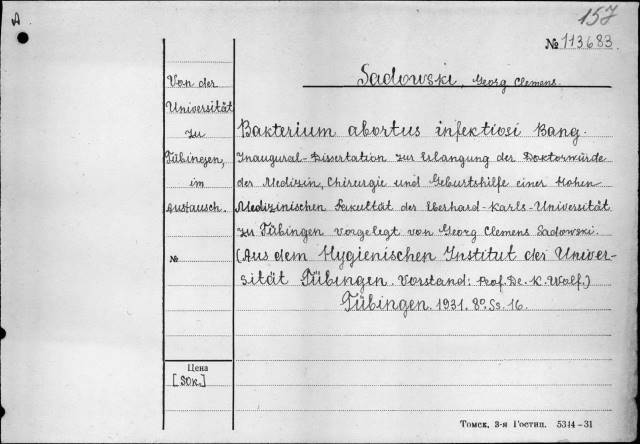 A
157
№ 113683.
Sadowski, Georg Clemens.
Von der
Universität
zu
Tübingen,
im
Austausch.
№
Bakterium abortus infektiosi Bang.
Inaugural-Dissertation zur Erlangung der Doktorwürde
der Medizin, Chirurgie und Geburtshilfe einer Hohen
Medizinischen Fakultät der Eberhard-Karls-Universität
zu Tübingen vorgelegt von Georg Clemens Sadowski.
(Aus dem Hygienischen Institut der Univer-
sität Tübingen. Vorstand: Prof. Dr. K. Wolf.)
Tübingen. 1931. 8°. Ss. 16.
Цена
[50к.]
Томск, 3-я Гостип. 5344-31